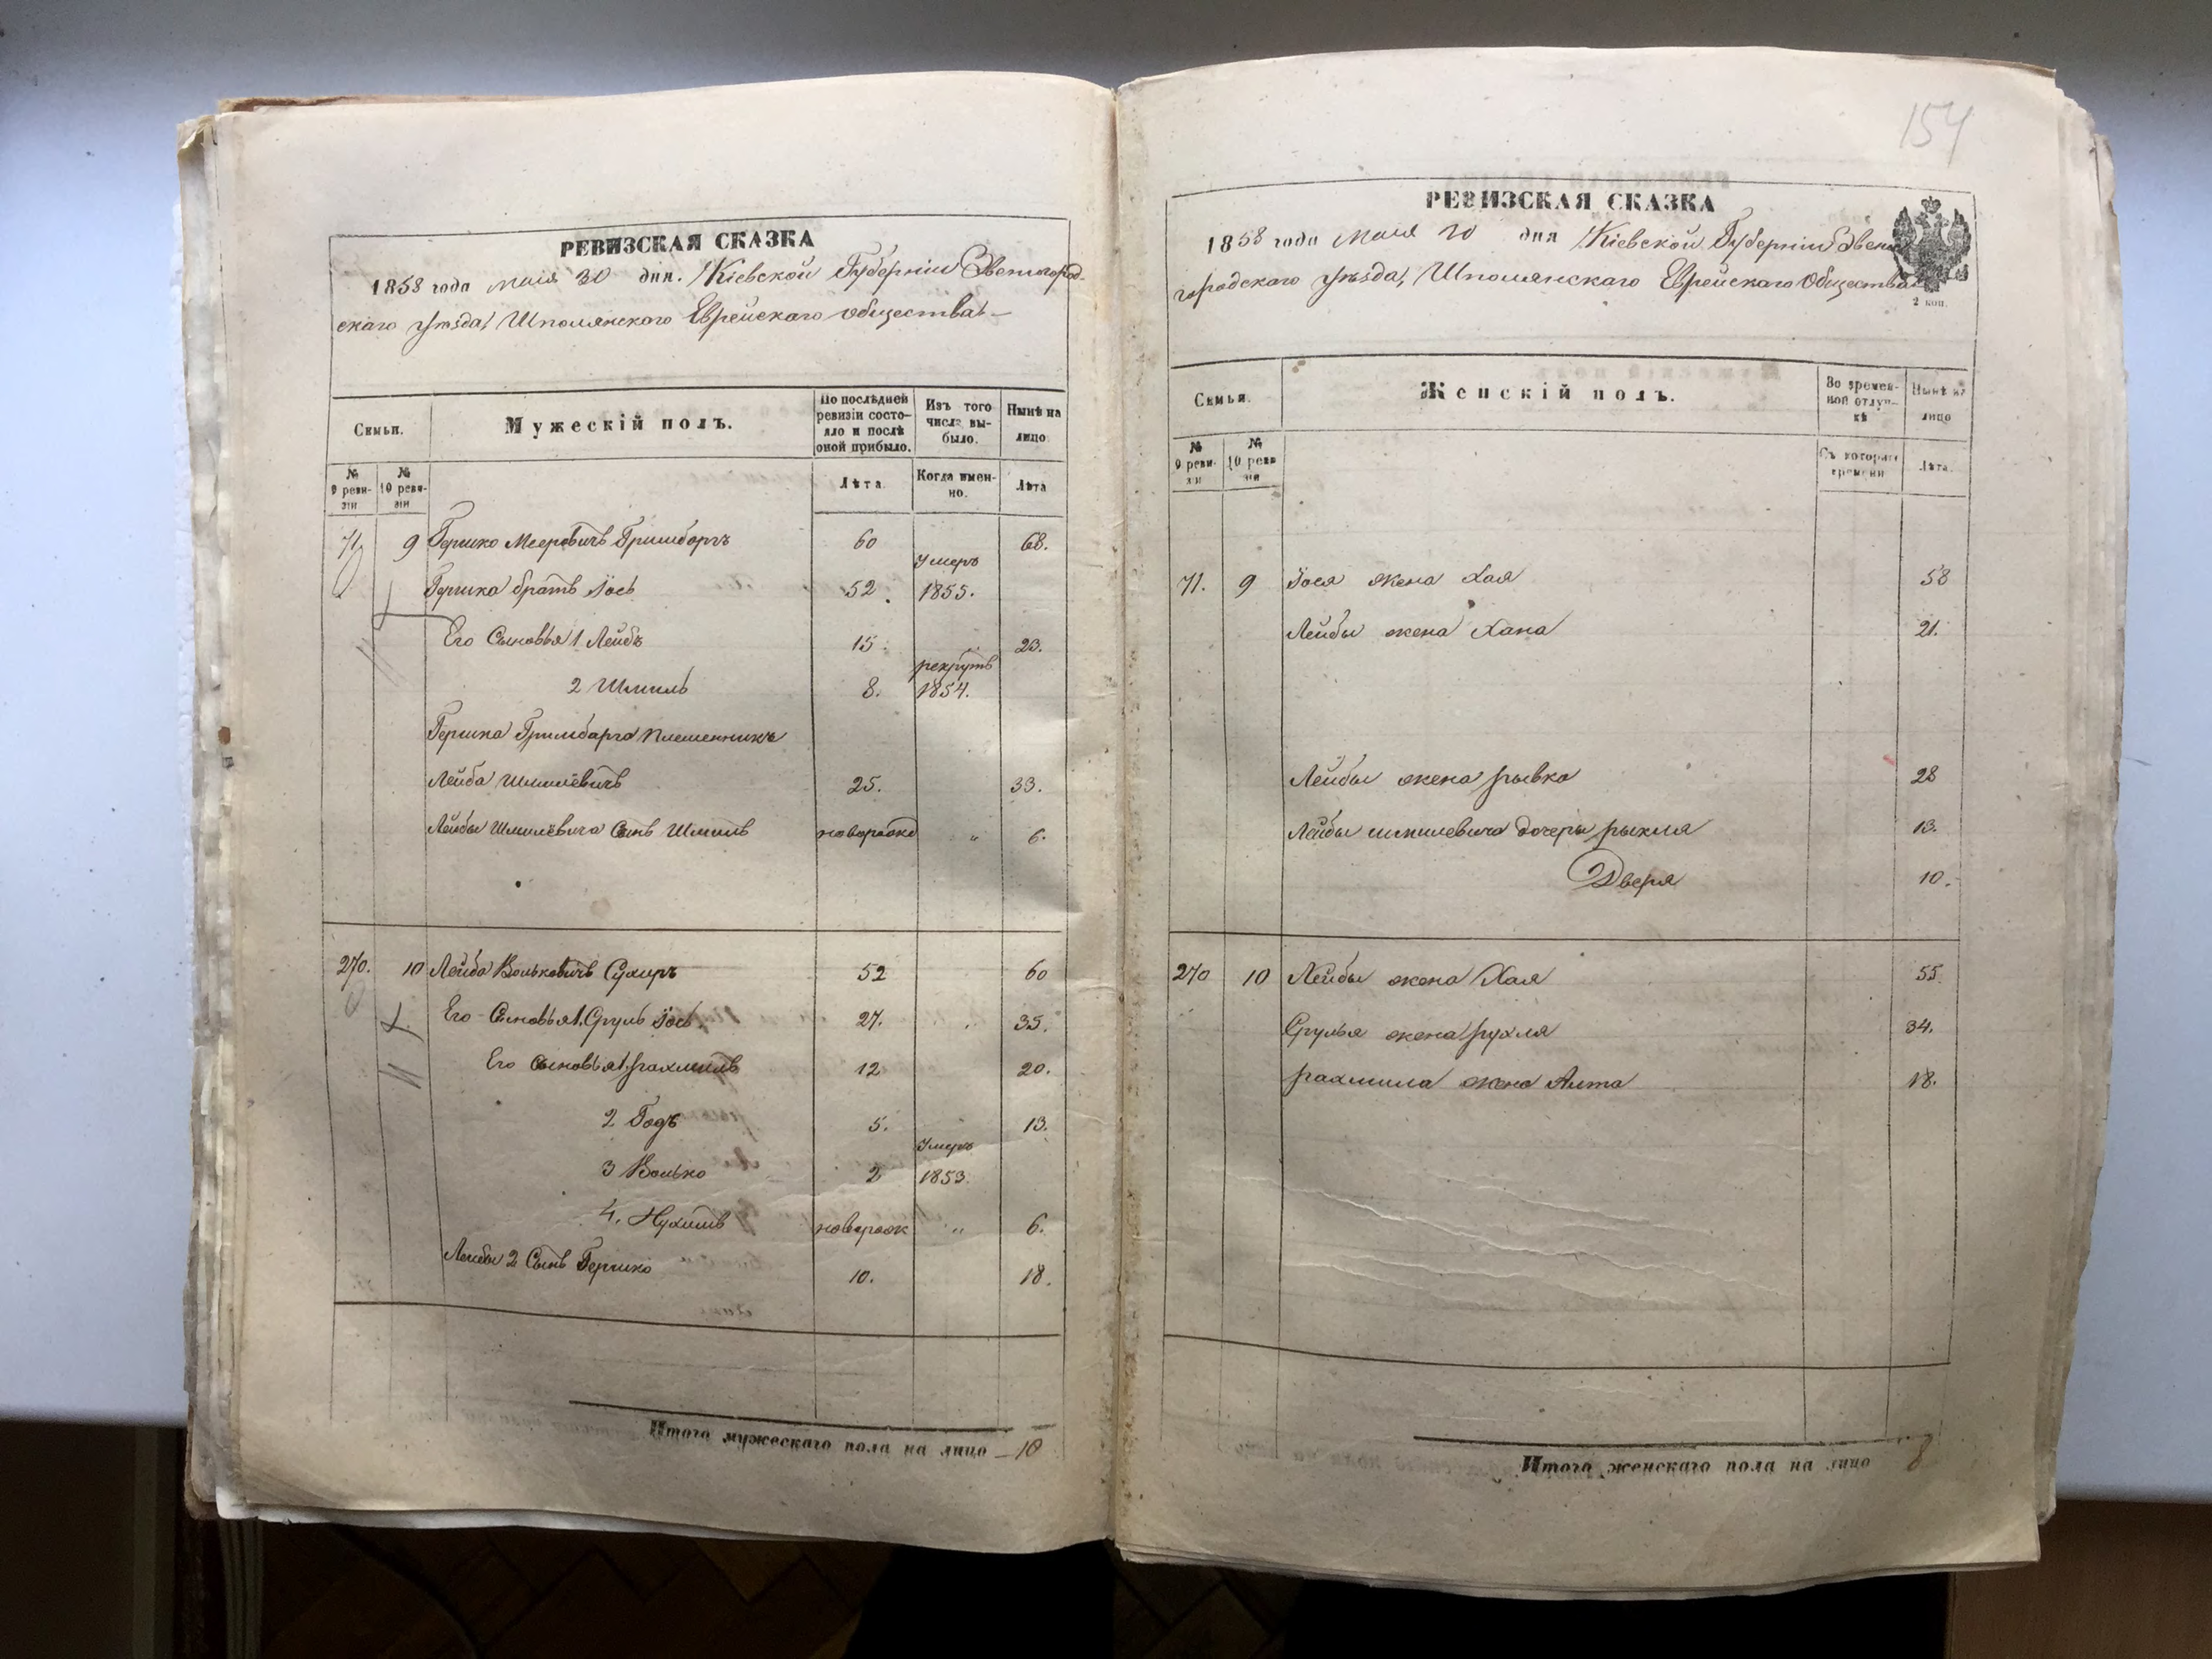 РЕВИЗСКАЯ СКАЗКА
1858 года маія 30 дня. Кіевской Губерніи Звенигород-
скаго уѣзда, Шполянскаго Еврейскаго общества
Семьи. Мужескій полъ. По послѣдней ревизіи состояло и послѣ оной прибыло. Изъ того числа выбыло. Нынѣ на лицо
№ 9 ревизіи № 10 ревизіи Лѣта Когда именно. Лѣта
71 9 Гершко Мееровичъ Гримбаргъ 60 68.
Гершка братъ Іось 52. Умеръ 1855.
Его Сыновья 1 Лейбъ 15. „ 23.
2 Шмиль 8. рекрутъ 1854.
Гершка Гримбарга племенникъ
Лейба Шмилёвичъ 25. 33.
Лейбы Шмилёвича Сынъ Шмиль новорожд „ 6.
270. 10 Лейба Вольковичъ Сухиръ 52 60
Его Сыновья 1. Сруль Іось. 27. „ 35.
Его Сыновья 1 рахмиль 12 20.
2 Годъ 5. 13.
3 Волько 2 Умеръ 1853.
4. Нухимъ новорож „ 6.
Лейбы 2 Сынъ Гершко 10. 18.
Итого мужескаго пола на лицо – 10
154
РЕВИЗСКАЯ СКАЗКА
1858 года маія 30 дня Кіевской Губерніи Звени
городскаго уѣзда, Шполянскаго Еврейскаго Общества
2 коп.
Семья. Женскій полъ. Во временной отлучкѣ Нынѣ на лицо
№ 9 ревизіи № 10 ревизіи Съ котораго времени Лѣта.
71. 9 Іося жена Хая 58
Лейбы жена Хана 21.
Лейбы жена рывка 28
Лейбы шмилевича дочеры рыхля 13.
Двера 10.
270 10 Лейбы жена Хая 55.
Срулья жена рухля 34.
рахмила жена Алта 18.
Итого женскаго пола на лицо 8